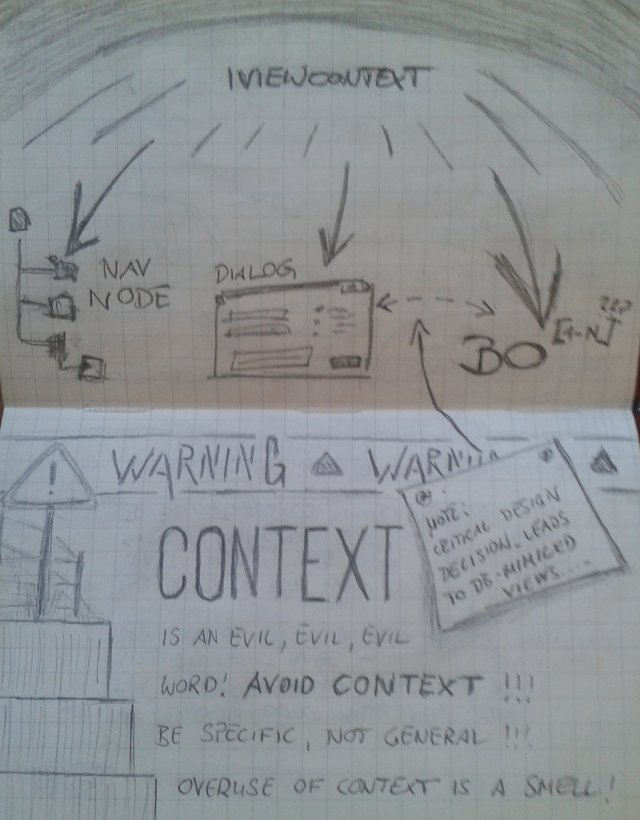 IVIEWCONTEXT
NAV
NODE
DIALOG
BO [1-N] ???
WARNING WARNING
CONTEXT
NOTE:
CRITICAL DESIGN
DECISION. LEADS
TO DE-MIMICED
VIEWS....
IS AN EVIL, EVIL, EVIL
WORD! AVOID CONTEXT !!!
BE SPECIFIC, NOT GENERAL !!!
OVERUSE OF CONTEXT IS A SMELL!